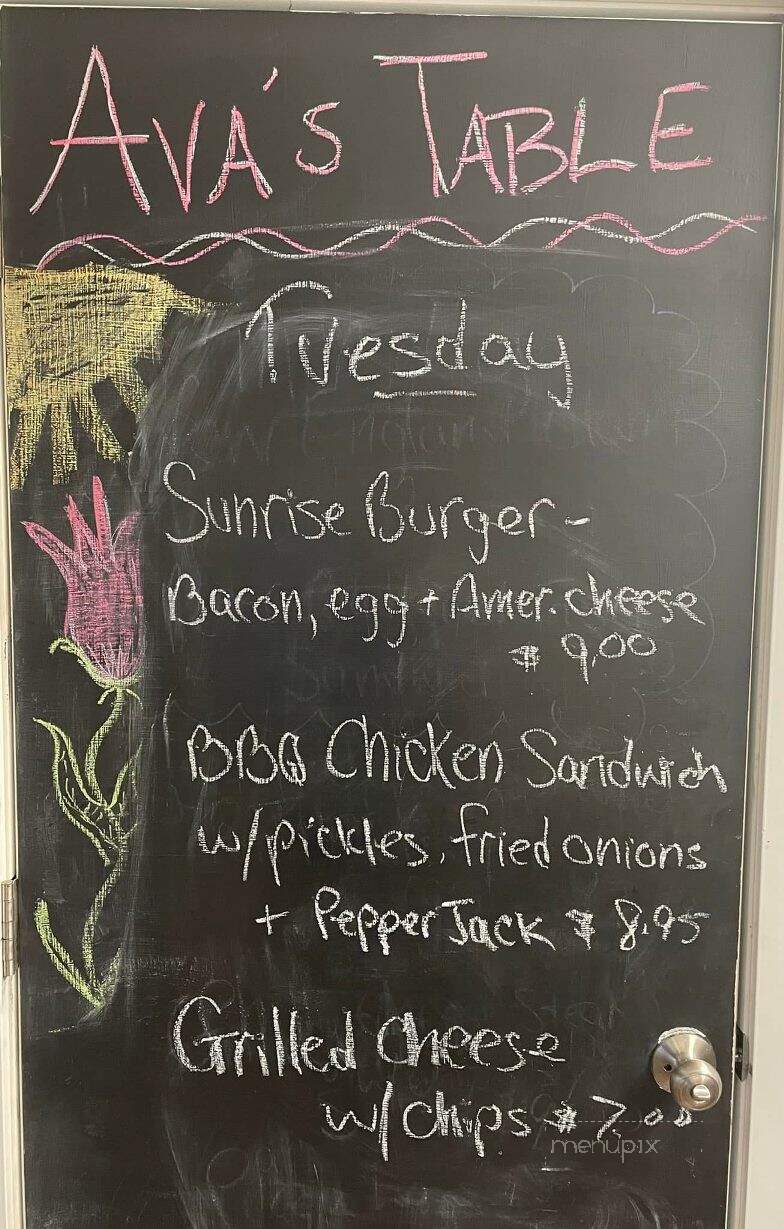 AVA'S TABLE
Tuesday
Sunrise Burger-
Bacon, egg + Amer. cheese
$ 9.00
BBQ Chicken Sandwich
w/pickles, fried onions
+ Pepper Jack $ 8.95
Grilled Cheese
w/chips $7.00
menupix